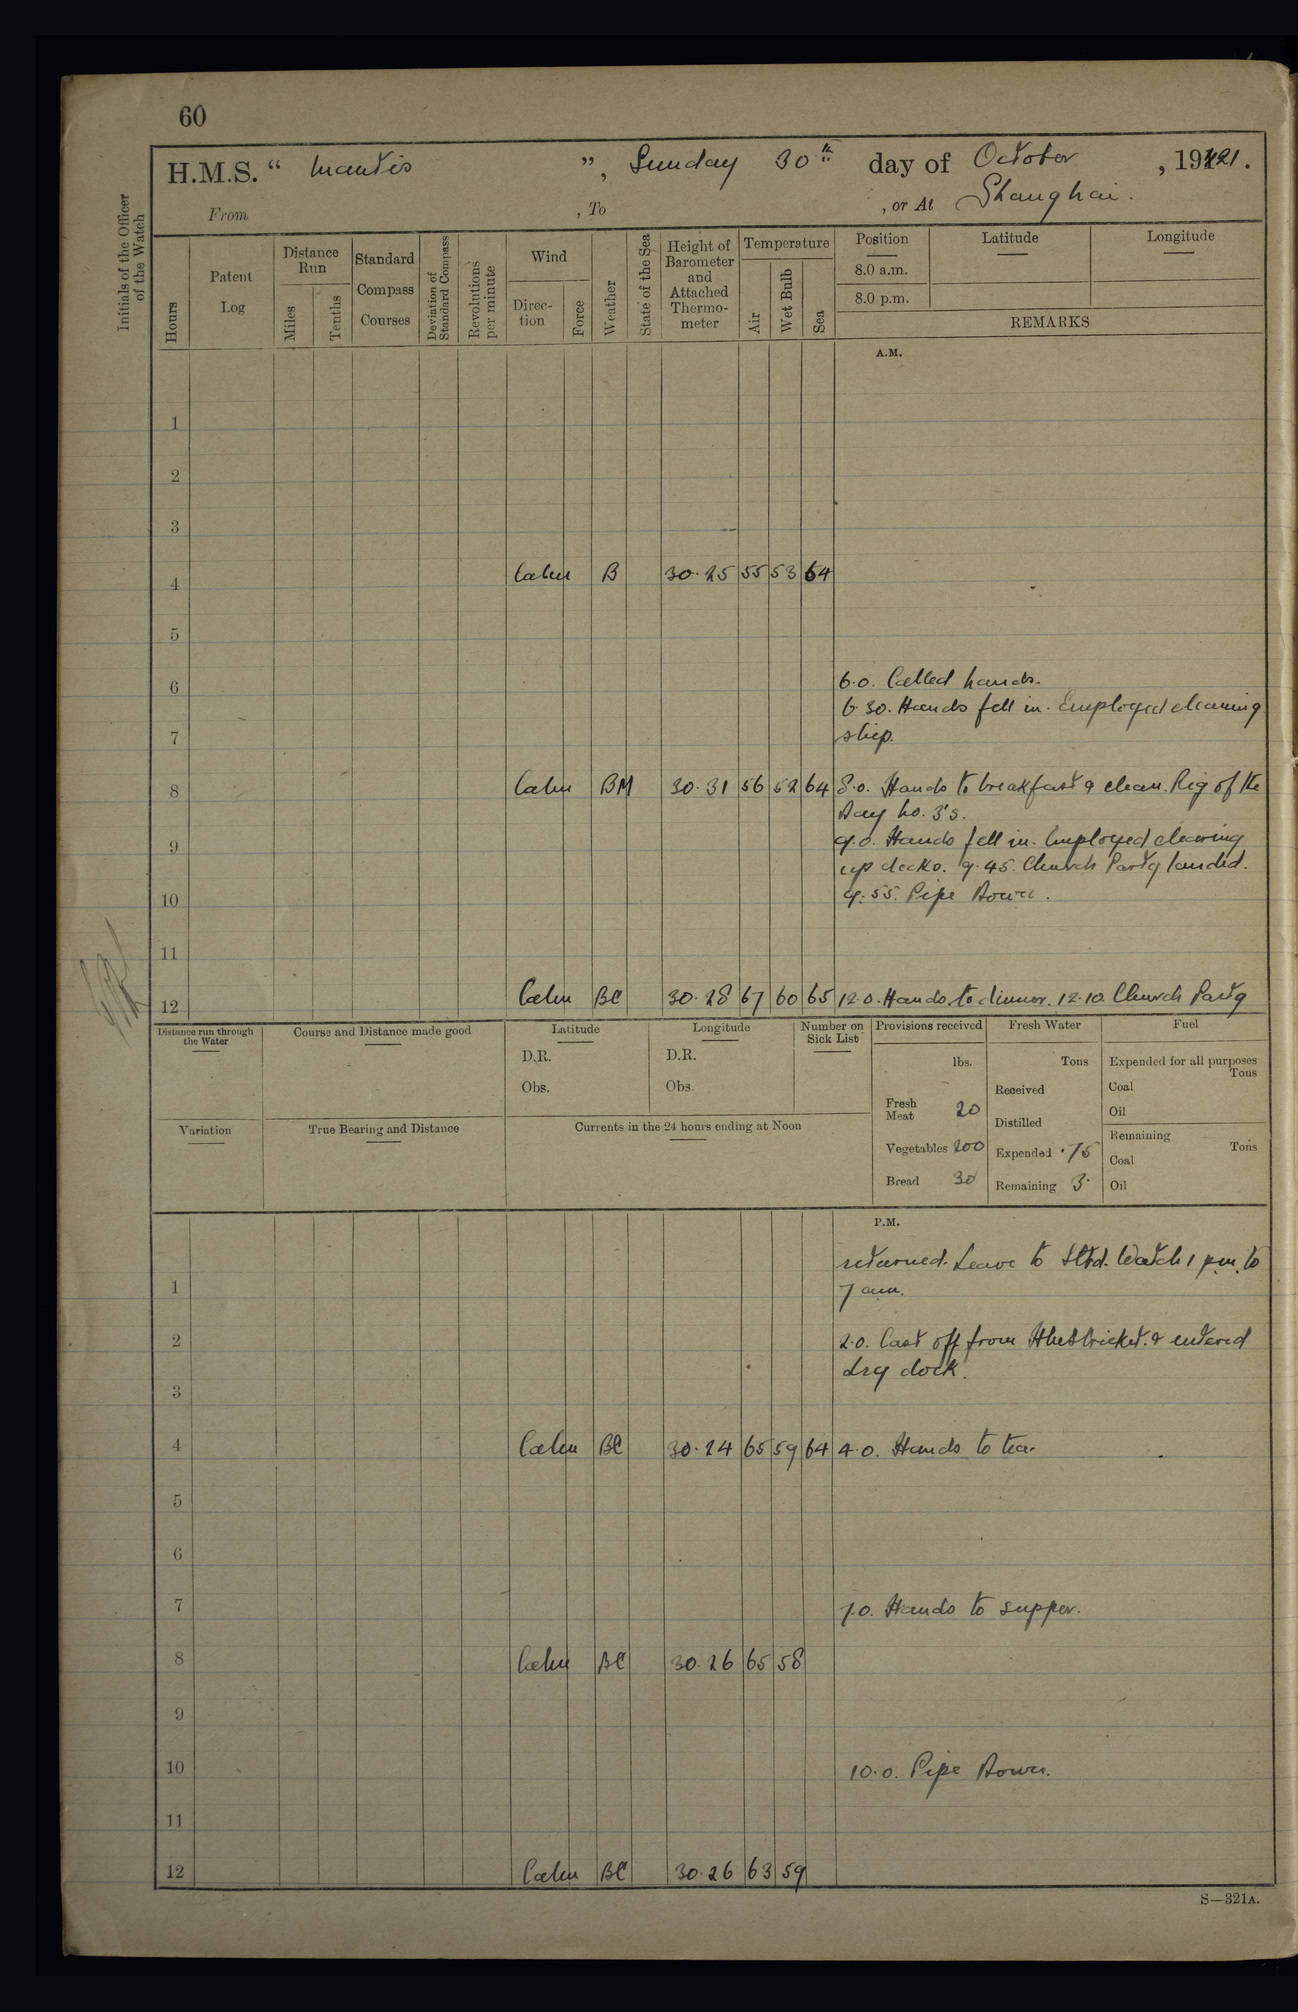 60
H.M.S. “ Mantis ”, Sunday 30th day of October, 1921.
From , To , or At Shanghai.
Initials of the Officer of the Watch
Hours
Patent Log
Distance Run
Miles
Tenths
Standard Compass Courses
Deviation of Standard Compass
Revolutions per minute
Wind
Direction
Force
Weather
State of the Sea
Height of Barometer and Attached Thermometer
Temperature
Air
Wet Bulb
Sea
Position
Latitude
Longitude
8.0 a.m.
8.0 p.m.
REMARKS
A.M.
1
2
3
4 Calm B 30.25 55 53 64
5
6 6.0. Called hands.
6.30. Hands fell in. Employed cleaning
7 ship.
8 Calm BM 30.31 56 52 64 8.0. Hands to breakfast & clean. Rig of the
Day No. 3's.
9 9.0. Hands fell in. Employed clearing
up decks. 9.45. Church Party landed.
10 9.55. Pipe Down.
11
12 Calm BC 30.28 67 60 65 12.0. Hands to dinner. 12.10. Church Party
Distance run through the Water
Course and Distance made good
Latitude
D.R.
Obs.
Longitude
D.R.
Obs.
Number on Sick List
Provisions received
lbs.
Fresh Meat 20
Vegetables 200
Bread 30
Fresh Water
Tons
Received
Distilled
Expended .75
Remaining 3
Fuel
Expended for all purposes
Tons
Coal
Oil
Remaining
Tons
Coal
Oil
Variation
True Bearing and Distance
Currents in the 24 hours ending at Noon
P.M.
returned. Leave to Stbd. Watch 1 pm. to
1 7 am.
2 2.0. Cast off from & entered
dry dock.
3
4 Calm BC 30.24 65 59 64 4.0. Hands to tea.
5
6
7 7.0. Hands to supper.
8 Calm BC 30.26 65 58
9
10 10.0. Pipe Down.
11
12 Calm BC 30.26 63 59
S—321A.